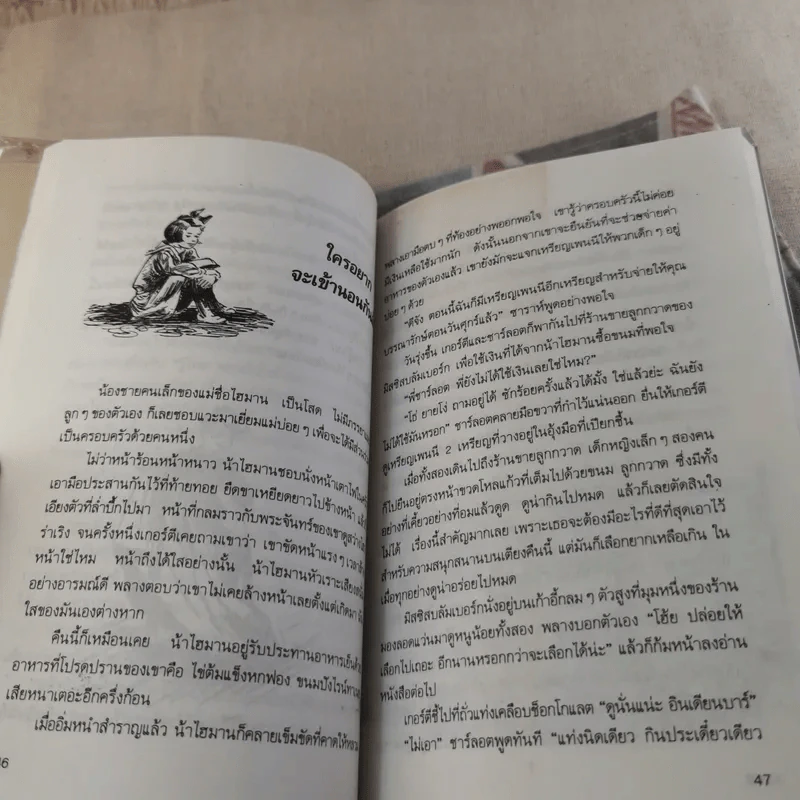 ใครอยาก
จะเข้านอนกัน
น้องชายคนเล็กของแม่ชื่อไฮมาน เป็นโสด ไม่มี
ลูก ๆ ของตัวเอง ก็เลยชอบแวะมาเยี่ยมแม่บ่อย ๆ เพื่อจะได้มี
เป็นครอบครัวด้วยคนหนึ่ง
ไม่ว่าหน้าร้อนหน้าหนาว น้าไฮมานชอบนั่งหน้าเตาไฟ
เอามือประสานกันไว้ที่ท้ายทอย ยืดขาเหยียดยาวไปข้างหน้า
เอียงตัวที่ล่ำบึ้กไปมา หน้าที่กลมราวกับพระจันทร์ของเขาดู
ร่าเริง จนครั้งหนึ่งเกอร์ตีเคยถามเขาว่า เขาขัดหน้าแรง ๆ
หน้าใช่ไหม หน้าถึงได้ใสอย่างนั้น น้าไฮมานหัวเราะเสียง
อย่างอารมณ์ดี พลางตอบว่าเขาไม่เคยล้างหน้าเลยตั้งแต่เกิดมา
ใสของมันเองต่างหาก
คืนนี้ก็เหมือนเคย น้าไฮมานอยู่รับประทานอาหารเย็น
อาหารที่โปรดปรานของเขาคือ ไข่ต้มแข็งหกฟอง ขนมปังไรน์
เสียหนาเตอะอีกครึ่งก้อน
เมื่ออิ่มหนำสำราญแล้ว น้าไฮมานก็คลายเข็มขัดที่คาดให้
46
พลางเอามือตบ ๆ ที่ท้องอย่างพออกพอใจ เขารู้ว่าครอบครัวนี้ไม่ค่อย
มีเงินเหลือใช้มากนัก ดังนั้นนอกจากเขาจะยืนยันที่จะช่วยจ่ายค่า
อาหารของตัวเองแล้ว เขายังมักจะแจกเหรียญเพนนีให้พวกเด็ก ๆ อยู่
บ่อย ๆ ด้วย
"ดีจัง ตอนนี้ฉันก็มีเหรียญเพนนีอีกเหรียญสำหรับจ่ายให้คุณ
บรรณารักษ์ตอนวันศุกร์แล้ว" ซาราห์พูดอย่างพอใจ
วันรุ่งขึ้น เกอร์ตีและชาร์ลอตก็พากันไปที่ร้านขายลูกกวาดของ
มิสซิสบลัมเบอร์ก เพื่อใช้เงินที่ได้จากน้าไฮมานซื้อขนมที่พอใจ
"พี่ชาร์ลอต พี่ยังไม่ได้ใช้เงินเลยใช่ไหม?"
"โซ่ ยายโง่ ถามอยู่ได้ ซักร้อยครั้งแล้วได้มั้ง ใช่แล้วย่ะ ฉันยัง
ไม่ได้ใช้มันหรอก" ชาร์ลอตคลายมือขวาที่กำไว้แน่นออก ยื่นให้เกอร์ตี
ดูเหรียญเพนนี 2 เหรียญที่วางอยู่ในอุ้งมือที่เปียกชื้น
เมื่อทั้งสองเดินไปถึงร้านขายลูกกวาด เด็กหญิงเล็ก ๆ สองคน
ก็ไปยืนอยู่ตรงหน้าขวดโหลแก้วที่เต็มไปด้วยขนม ลูกกวาด ซึ่งมีทั้ง
อย่างที่เคี้ยวอย่างที่อมแล้วดูด ดูน่ากินไปหมด แล้วก็เลยตัดสินใจ
ไม่ได้ เรื่องนี้สำคัญมากเลย เพราะเธอจะต้องมีอะไรที่ดีที่สุดเอาไว้
สำหรับความสนุกสนานบนเตียงคืนนี้ แต่มันก็เลือกยากเหลือเกิน ใน
เมื่อทุกอย่างดูน่าอร่อยไปหมด
มิสซิสบลัมเบอร์กนั่งอยู่บนเก้าอี้กลม ๆ ตัวสูงที่มุมหนึ่งของร้าน
มองลอดแว่นมาดูหนูน้อยทั้งสอง พลางบอกตัวเอง "โฮ้ย ปล่อยให้
เลือกไปเถอะ อีกนานหรอกกว่าจะเลือกได้น่ะ" แล้วก็ก้มหน้าลงอ่าน
หนังสือต่อไป
เกอร์ตีชี้ไปที่ถั่วแท่งเคลือบช็อกโกแลต "ดูนั่นแน่ะ อินเดียนบาร์"
"ไม่เอา" ชาร์ลอตพูดทันที "แท่งนิดเดียว กินประเดี๋ยวเดียว
47